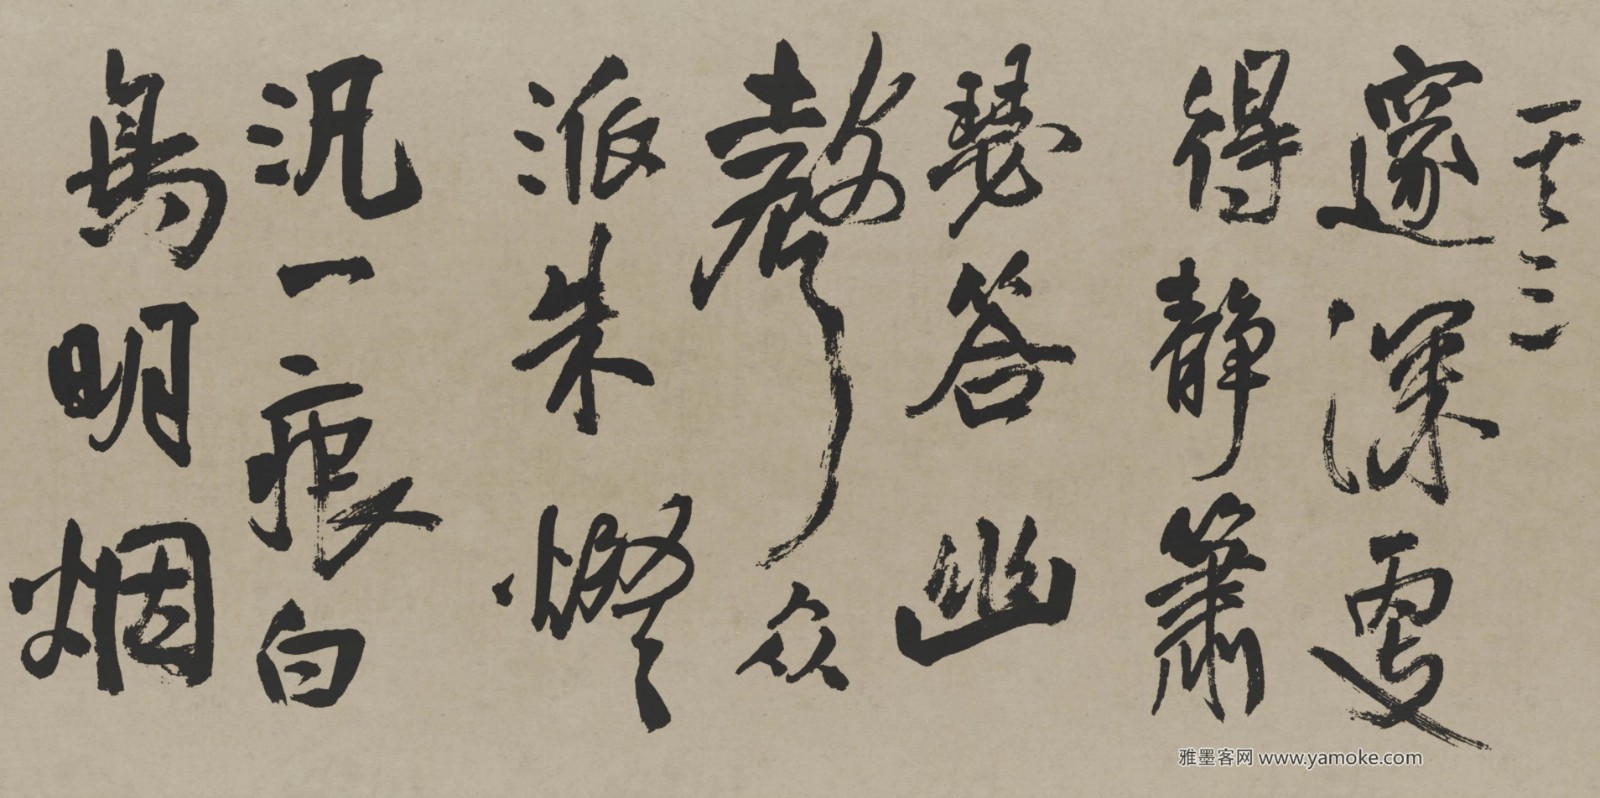 其三
邃深更
得静箫
瑟答幽
声众
派朱燈
汎一痕白
鳥明烟
雅墨客网 www.yamoke.com